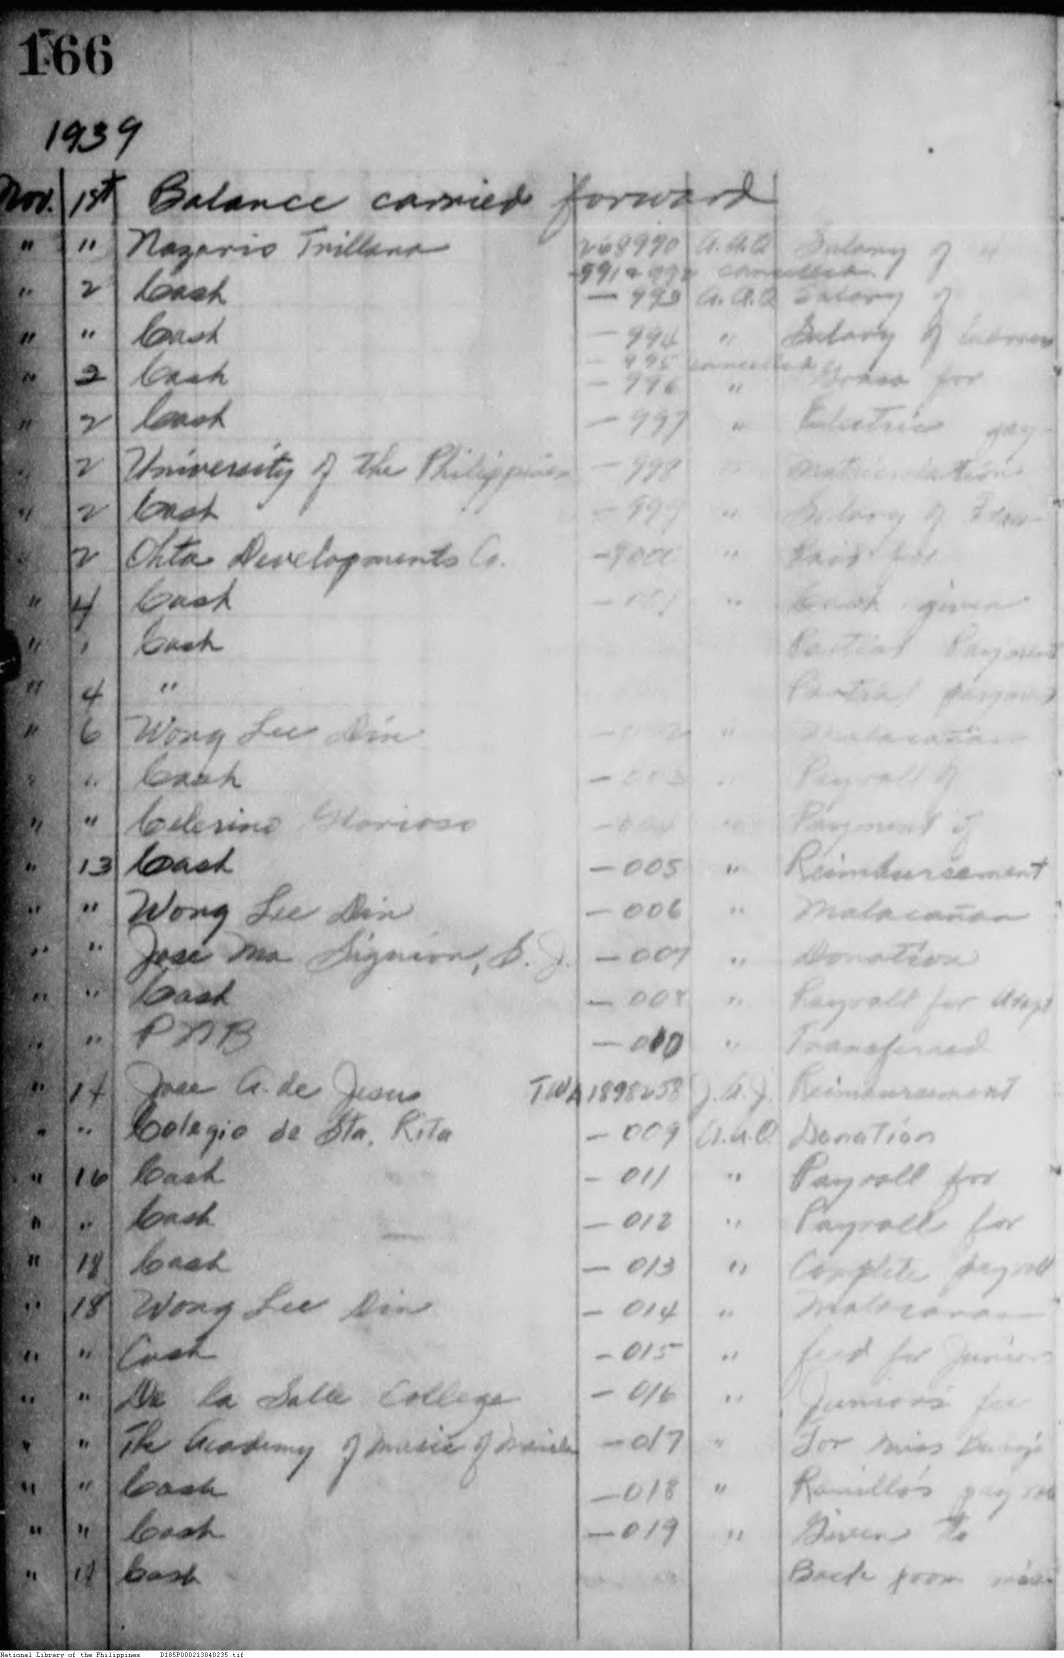 166
1939
Nov. 1st Balance carried forward
" " Nazario Trillana 268990 A.A.Q Salary of
991 & 992 cancelled
" 2 Cash — 993 A.A.Q Salary of
" " Cash — 994 " Salary of laborers
— 995 cancelled
" 2 Cash — 996 " for
" 2 Cash — 997 " Electric
" 2 University of the Philippines — 998 " matriculation
" 2 Cash — 999 " Salary of
" 2 Ohta Developments Co. " Paid for
" 4 Cash " Cash given
" " Cash Partial Payment
" 4 " Partial payment
" 6 Wong Lee Din — 002 " Malacañan
" " Cash — 003 " Payroll of
" " Celerino Glorioso — 004 " Payment of
" 13 Cash — 005 " Reimbursement
" " Wong Lee Din — 006 " Malacañan
" " Jose Ma Siguion, S. J. — 007 " Donation
" " Cash — 008 " Payroll for
" " PNB — 010 " Transferred
" 14 Jose A. de Jesus TWA1898258 J.A.J. Reimbursement
" " Colegio de Sta. Rita — 009 A.A.Q Donation
" 16 Cash — 011 " Payroll for
" " Cash — 012 " Payroll for
" 18 Cash — 013 " Complete payroll
" 18 Wong Lee Din — 014 " Malacanan
" " Cash — 015 " for Juniors
" " De la Salle College — 016 " Junior's
" " The Academy of Music of Manila — 017 " For Miss
" " Cash — 018 "
" " Cash — 019 " Given to
" 17 Cash Back from
National Library of the Philippines D185P000213040235.tif